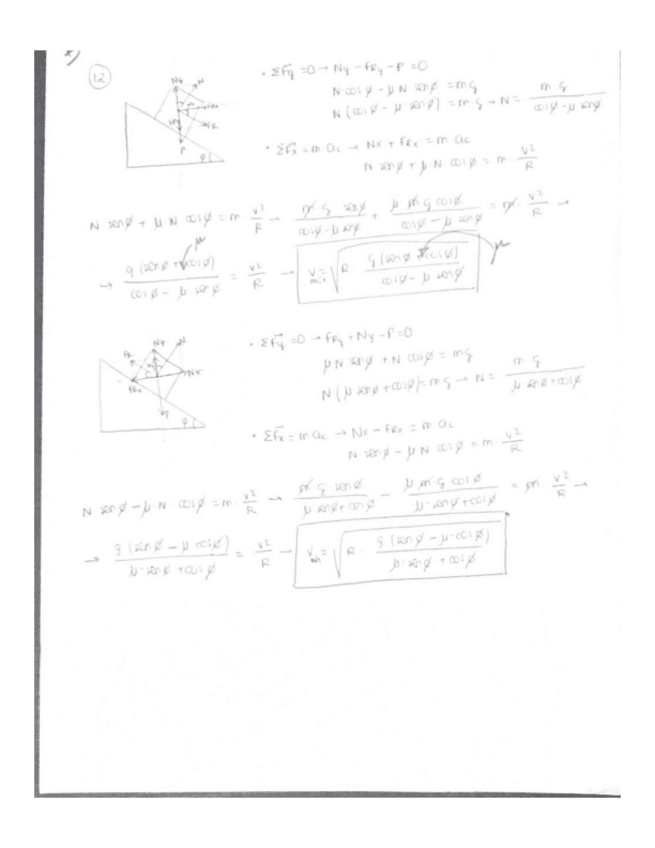 12
• ΣFy = 0 → Ny - FRy - P = 0
N cos φ - μ N sen φ = mg
N (cos φ - μ · sen φ) = m g → N = m g / cos φ - μ sen φ
• ΣFx = m ac → Nx + FRx = m ac
N sen φ + μ N cos φ = m · v² / R
N sen φ + μ · N cos φ = m v² / R → m g sen φ / cos φ - μ sen φ + μ m g cos φ / cos φ - μ sen φ = m · v² / R →
μ
→ g (sen φ + cos φ) / cos φ - μ sen φ = v² / R → v máx = √ R · g (sen φ + cos φ) / cos φ - μ sen φ μ
• ΣFy = 0 → FRy + Ny - P = 0
μ N sen φ + N cos φ = mg
N (μ sen φ + cos φ) = m g → N = m g / μ sen φ + cos φ
• ΣFx = m ac → Nx - FRx = m ac
N sen φ - μ N cos φ = m · v² / R
N sen φ - μ · N cos φ = m · v² / R → m g sen φ / μ sen φ + cos φ - μ m g cos φ / μ · sen φ + cos φ = m · v² / R →
→ g (sen φ - μ cos φ) / μ · sen φ + cos φ = v² / R → v mín = √ R · g (sen φ - μ · cos φ) / μ · sen φ + cos φ